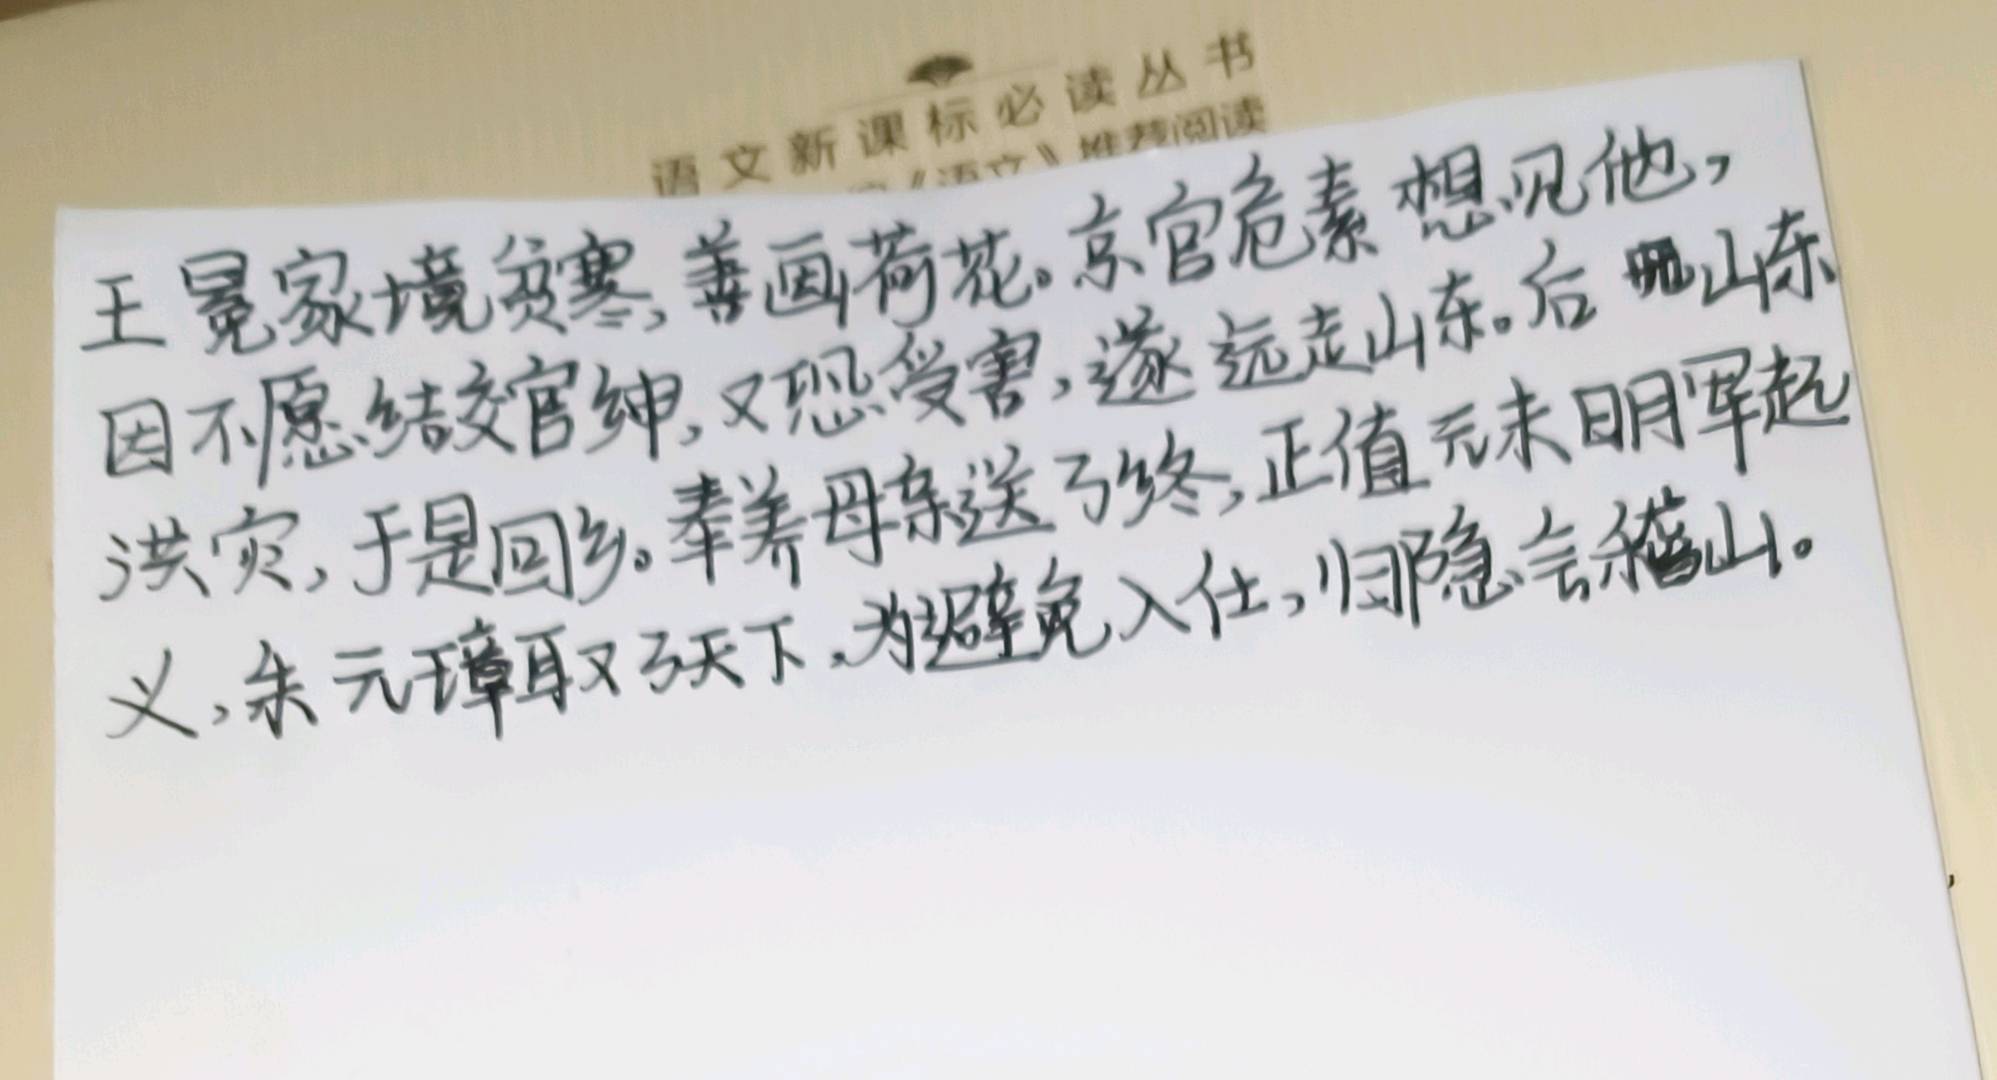 语文新课标必读丛书
《语文》推荐阅读
王冕家境贫寒,善画荷花。京官危素想见他,
因不愿结交官绅,又恐受害,遂远走山东。后山东
洪灾,于是回乡。奉养母亲送了终,正值元末明军起
义,朱元璋取了天下,为避免入仕,归隐会稽山。